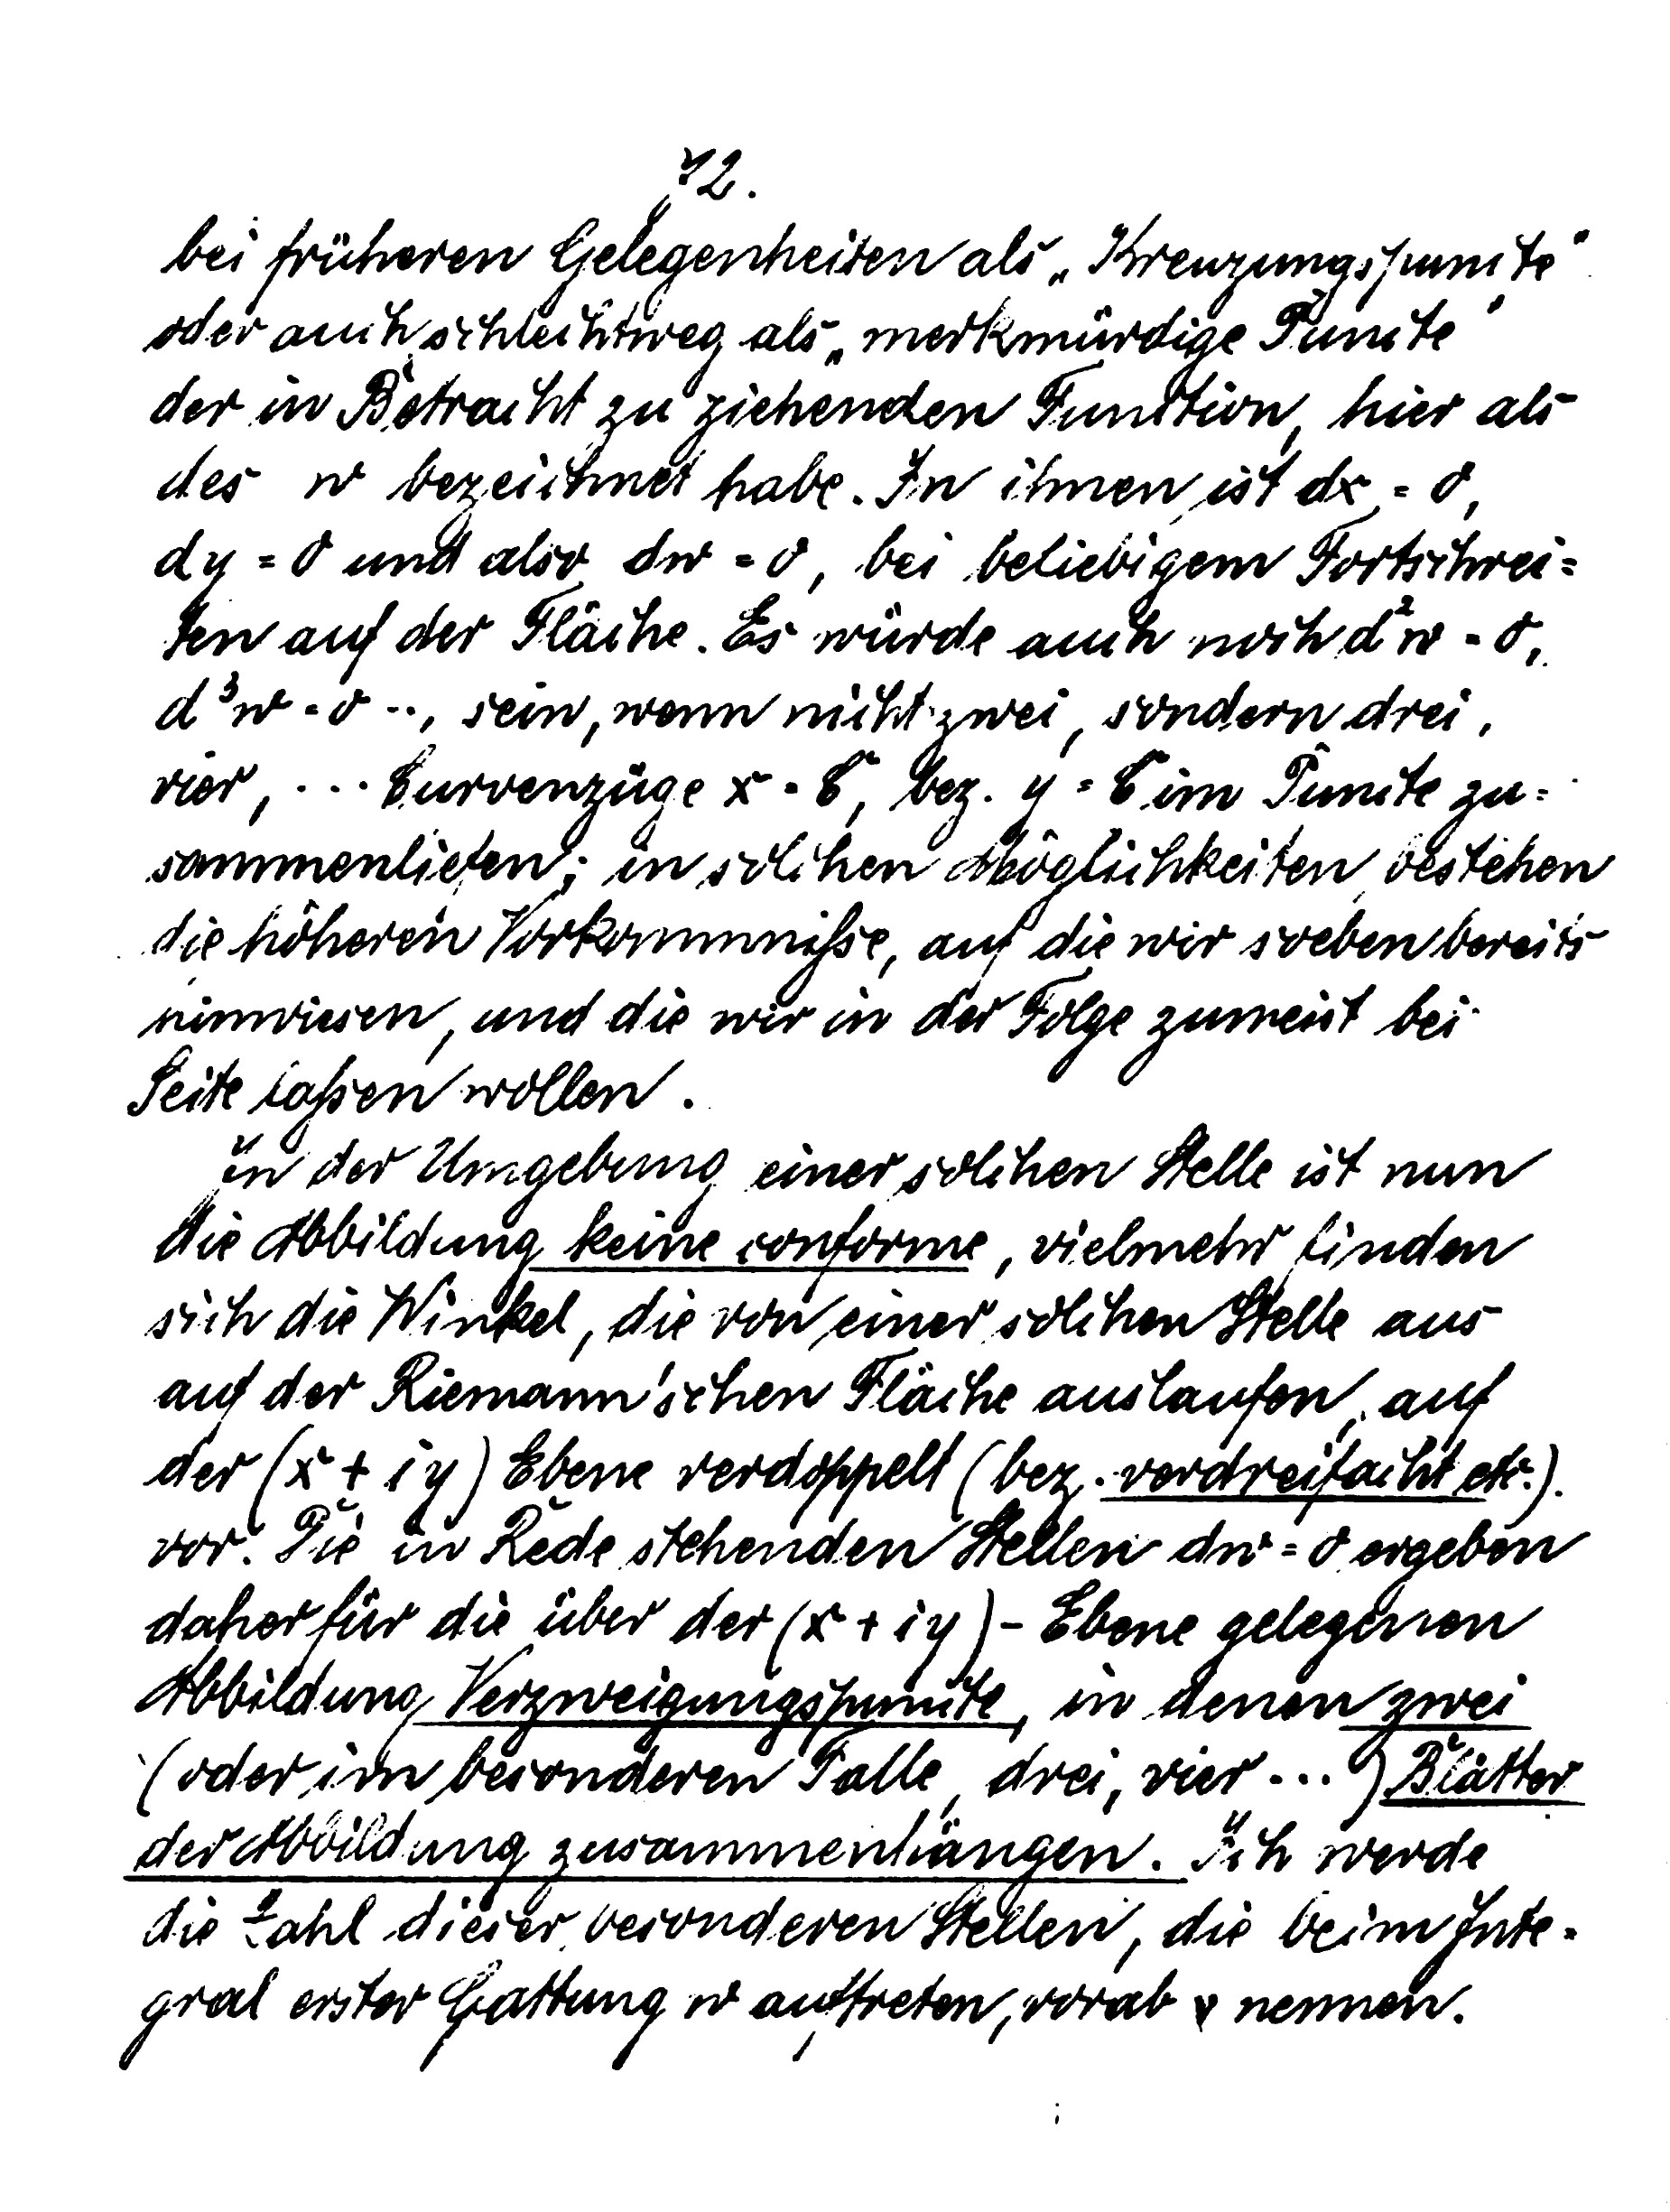 72.
bei früheren Gelegenheiten als „Kreuzungspuncte“
oder auch schlechtweg als „merkwürdige Puncte“
der in Betracht zu ziehenden Function, hier als
des w bezeichnet habe. In ihnen ist dx = 0,
dy = 0 und also dw = 0, bei beliebigem Fortschrei=
ten auf der Fläche. Es würde auch noch d²w = 0,
d³w = 0 .., sein, wenn nicht zwei, sondern drei,
vier, ... Curvenzüge x = C, bez. y = C im Puncte zu=
sammenliefen; in solchen Möglichkeiten bestehen
die höheren Vorkommnisse, auf die wir soeben bereits
hinwiesen, und die wir in der Folge zumeist bei
Seite lassen wollen.
In der Umgebung einer solchen Stelle ist nun
die Abbildung keine conforme, vielmehr finden
sich die Winkel, die von einer solchen Stelle aus
auf der Riemann'schen Fläche auslaufen, auf
der (x + iy) Ebene verdoppelt (bez. verdreifacht etc.)
vor. Die in Rede stehenden Stellen dw = 0 ergeben
daher für die über der (x + iy) - Ebene gelegenen
Abbildung Verzweigungspuncte, in denen zwei
(oder im besonderen Falle, drei, vier ...) Blätter
der Abbildung zusammenhängen. Ich werde
die Zahl dieser besonderen Stellen, die beim Inte=
gral erster Gattung w auftreten, vorab ν nennen.